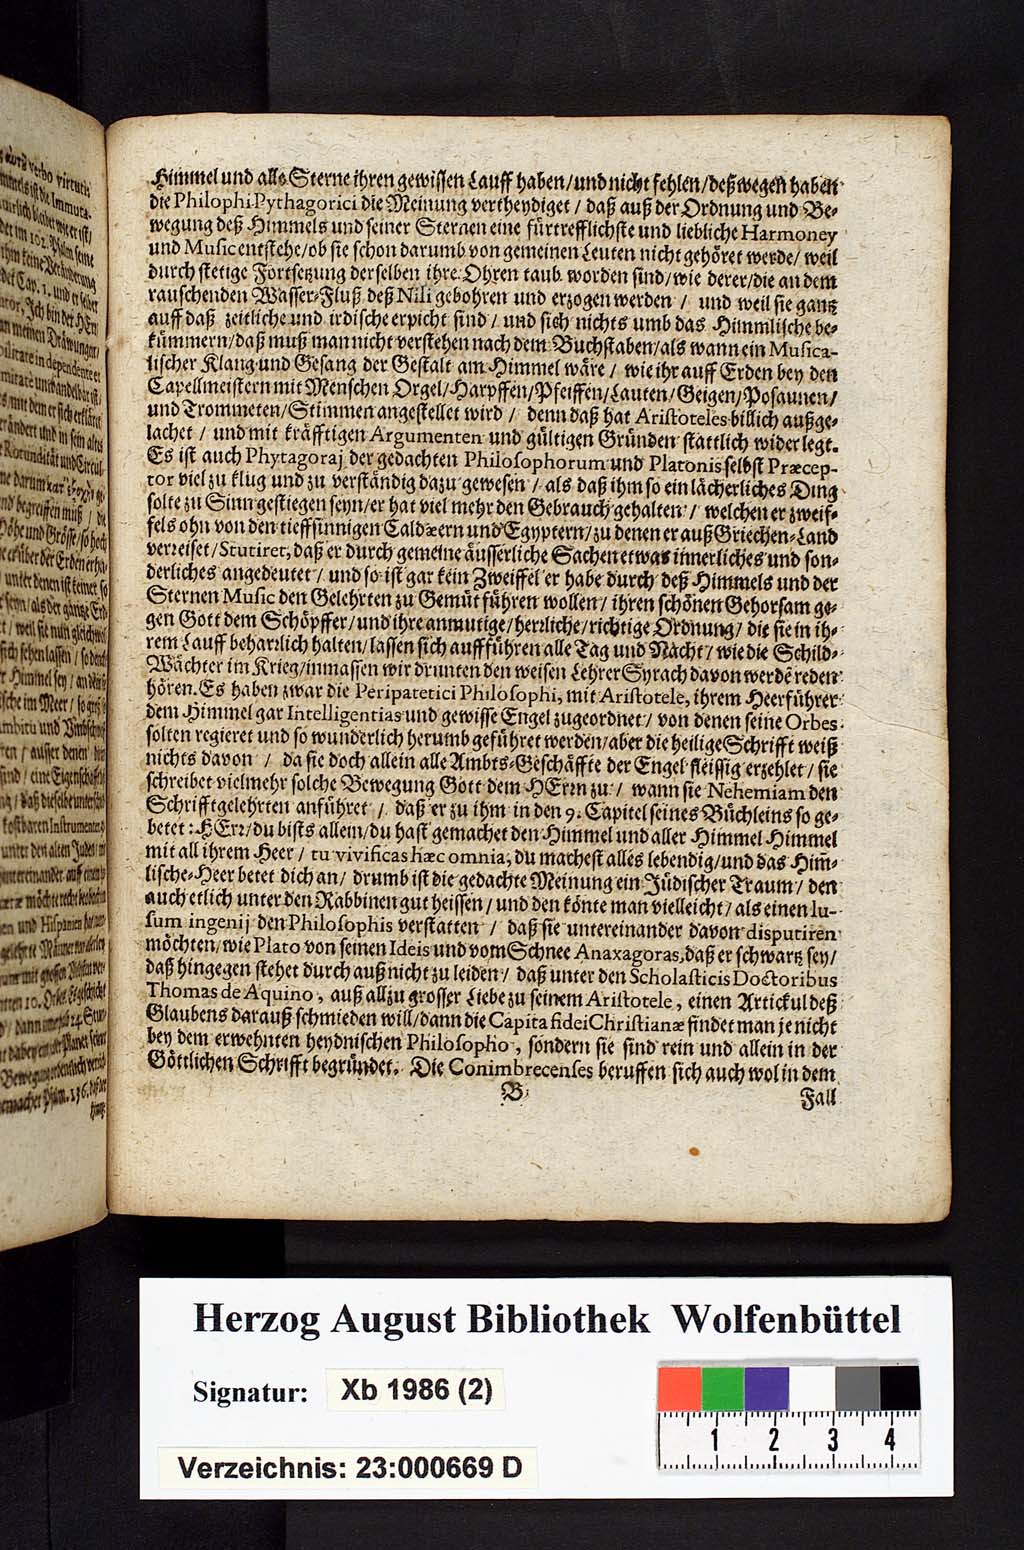 Himmel und alle Sterne ihren gewissen Lauff haben/und nicht fehlen/deßwegen haben
die Philophi Pythagorici die Meinung vertheydiget / daß auß der Ordnung und Be-
wegung deß Himmels und seiner Sternen eine fürtrefflichste und liebliche Harmoney
und Music entstehe/ob sie schon darumb von gemeinen Leuten nicht gehöret werde/ weil
durch stetige Fortsetzung derselben ihre Ohren taub worden sind/wie derer/die an dem
rauschenden Wasser-Fluß deß Nili gebohren und erzogen werden / und weil sie gantz
auff daß zeitliche und irdische erpicht sind / und sich nichts umb das Himmlische be-
kümmern/daß muß man nicht verstehen nach dem Buchstaben/als wann ein Musica-
lischer Klang und Gesang der Gestalt am Himmel wäre / wie ihr auff Erden bey den
Capellmeistern mit Menschen Orgel/Harpffen/Pfeiffen/Lauten/Geigen/Posaunen/
und Trommeten/Stimmen angestellet wird / denn daß hat Aristoteles billich außge-
lachet / und mit kräfftigen Argumenten und gültigen Gründen stattlich widerlegt.
Es ist auch Phytagoraj der gedachten Philosophorum und Platonis selbst Præcep-
tor viel zu klug und zu verständig dazu gewesen / als daß ihm so ein lächerliches Ding
solte zu Sinn gestiegen seyn/er hat viel mehr den Gebrauch gehalten / welchen er zweif-
fels ohn von den tieffsinnigen Caldæern und Egyptern/zu denen er auß Griechen-Land
verreiset/Stutiret, daß er durch gemeine äusserliche Sachen etwas innerliches und son-
derliches angedeutet / und so ist gar kein Zweiffel er habe durch deß Himmels und der
Sternen Music den Gelehrten zu Gemüt führen wollen / ihren schönen Gehorsam ge-
gen Gott dem Schöpffer/und ihre anmutige/herrliche/richtige Ordnung/ die sie in ih-
rem Lauff beharrlich halten/lassen sich auffführen alle Tag und Nacht/ wie die Schild-
Wächter im Krieg/inmassen wir drunten den weisen Lehrer Syrach davon werdē reden
hören. Es haben zwar die Peripatetici Philosophi, mit Aristotele, ihrem Heerführer
dem Himmel gar Intelligentias und gewisse Engel zugeordnet / von denen seine Orbes
solten regieret und so wunderlich herumb geführet werden/aber die heilige Schrifft weiß
nichts davon / da sie doch allein alle Ambts-Geschäffte der Engel fleissig erzehlet / sie
schreibet vielmehr solche Bewegung Gott dem HErrn zu / wann sie Nehemiam den
Schrifftgelehrten anführet / daß er zu ihm in den 9. Capitel seines Büchleins so ge-
betet: HErr/du bists allein/du hast gemachet den Himmel und aller Himmel Himmel
mit all ihrem Heer / tu vivificas hæc omnia, du machest alles lebendig/und das Him̄-
lische-Heer betet dich an/ drumb ist die gedachte Meinung ein Jüdischer Traum / den
auch etlich unter den Rabbinen gut heissen / und den könte man vielleicht / als einen lu-
sum ingenij den Philosophis verstatten / daß sie untereinander davon disputiren
möchten/wie Plato von seinen Ideis und vom Schnee Anaxagoras, daß er schwartz sey/
daß hingegen stehet durch auß nicht zu leiden / daß unter den Scholasticis Doctoribus
Thomas de Aquino, auß allzu grosser Liebe zu seinem Aristotele, einen Artickul deß
Glaubens darauß schmieden will/dann die Capita fidei Christianæ findet man je nicht
bey dem erwehnten heydnischen Philosopho, sondern sie sind rein und allein in der
Göttlichen Schrifft begründet. Die Conimbrecenses beruffen sich auch wol in dem
B
Fall
Herzog August Bibliothek Wolfenbüttel
Signatur: Xb 1986 (2)
1 2 3 4
Verzeichnis: 23:000669 D